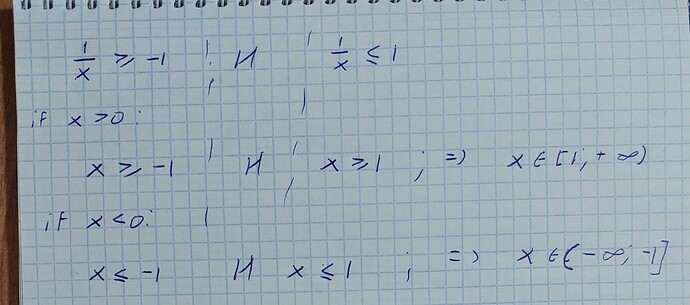 1/x ≥ -1 | И | 1/x ≤ 1
if x > 0:
x ≥ -1 | И | x ≥ 1 ; => x ∈ [1; +∞)
if x < 0:
x ≤ -1 И x ≤ 1 ; => x ∈ (-∞; -1]